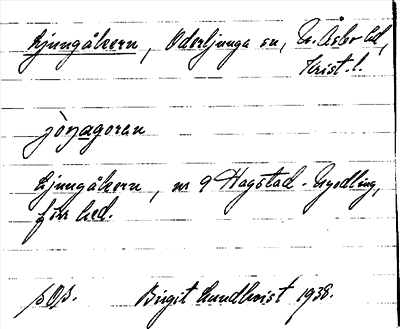 Ljungåkern, Oderljunga sn, N. Åsbo hd,
Krist. l.
jöŋagoran
Ljungåkern, nr 9 Hagstad. Nyodling,
förr hed.
Birgit Lundkvist 1938.